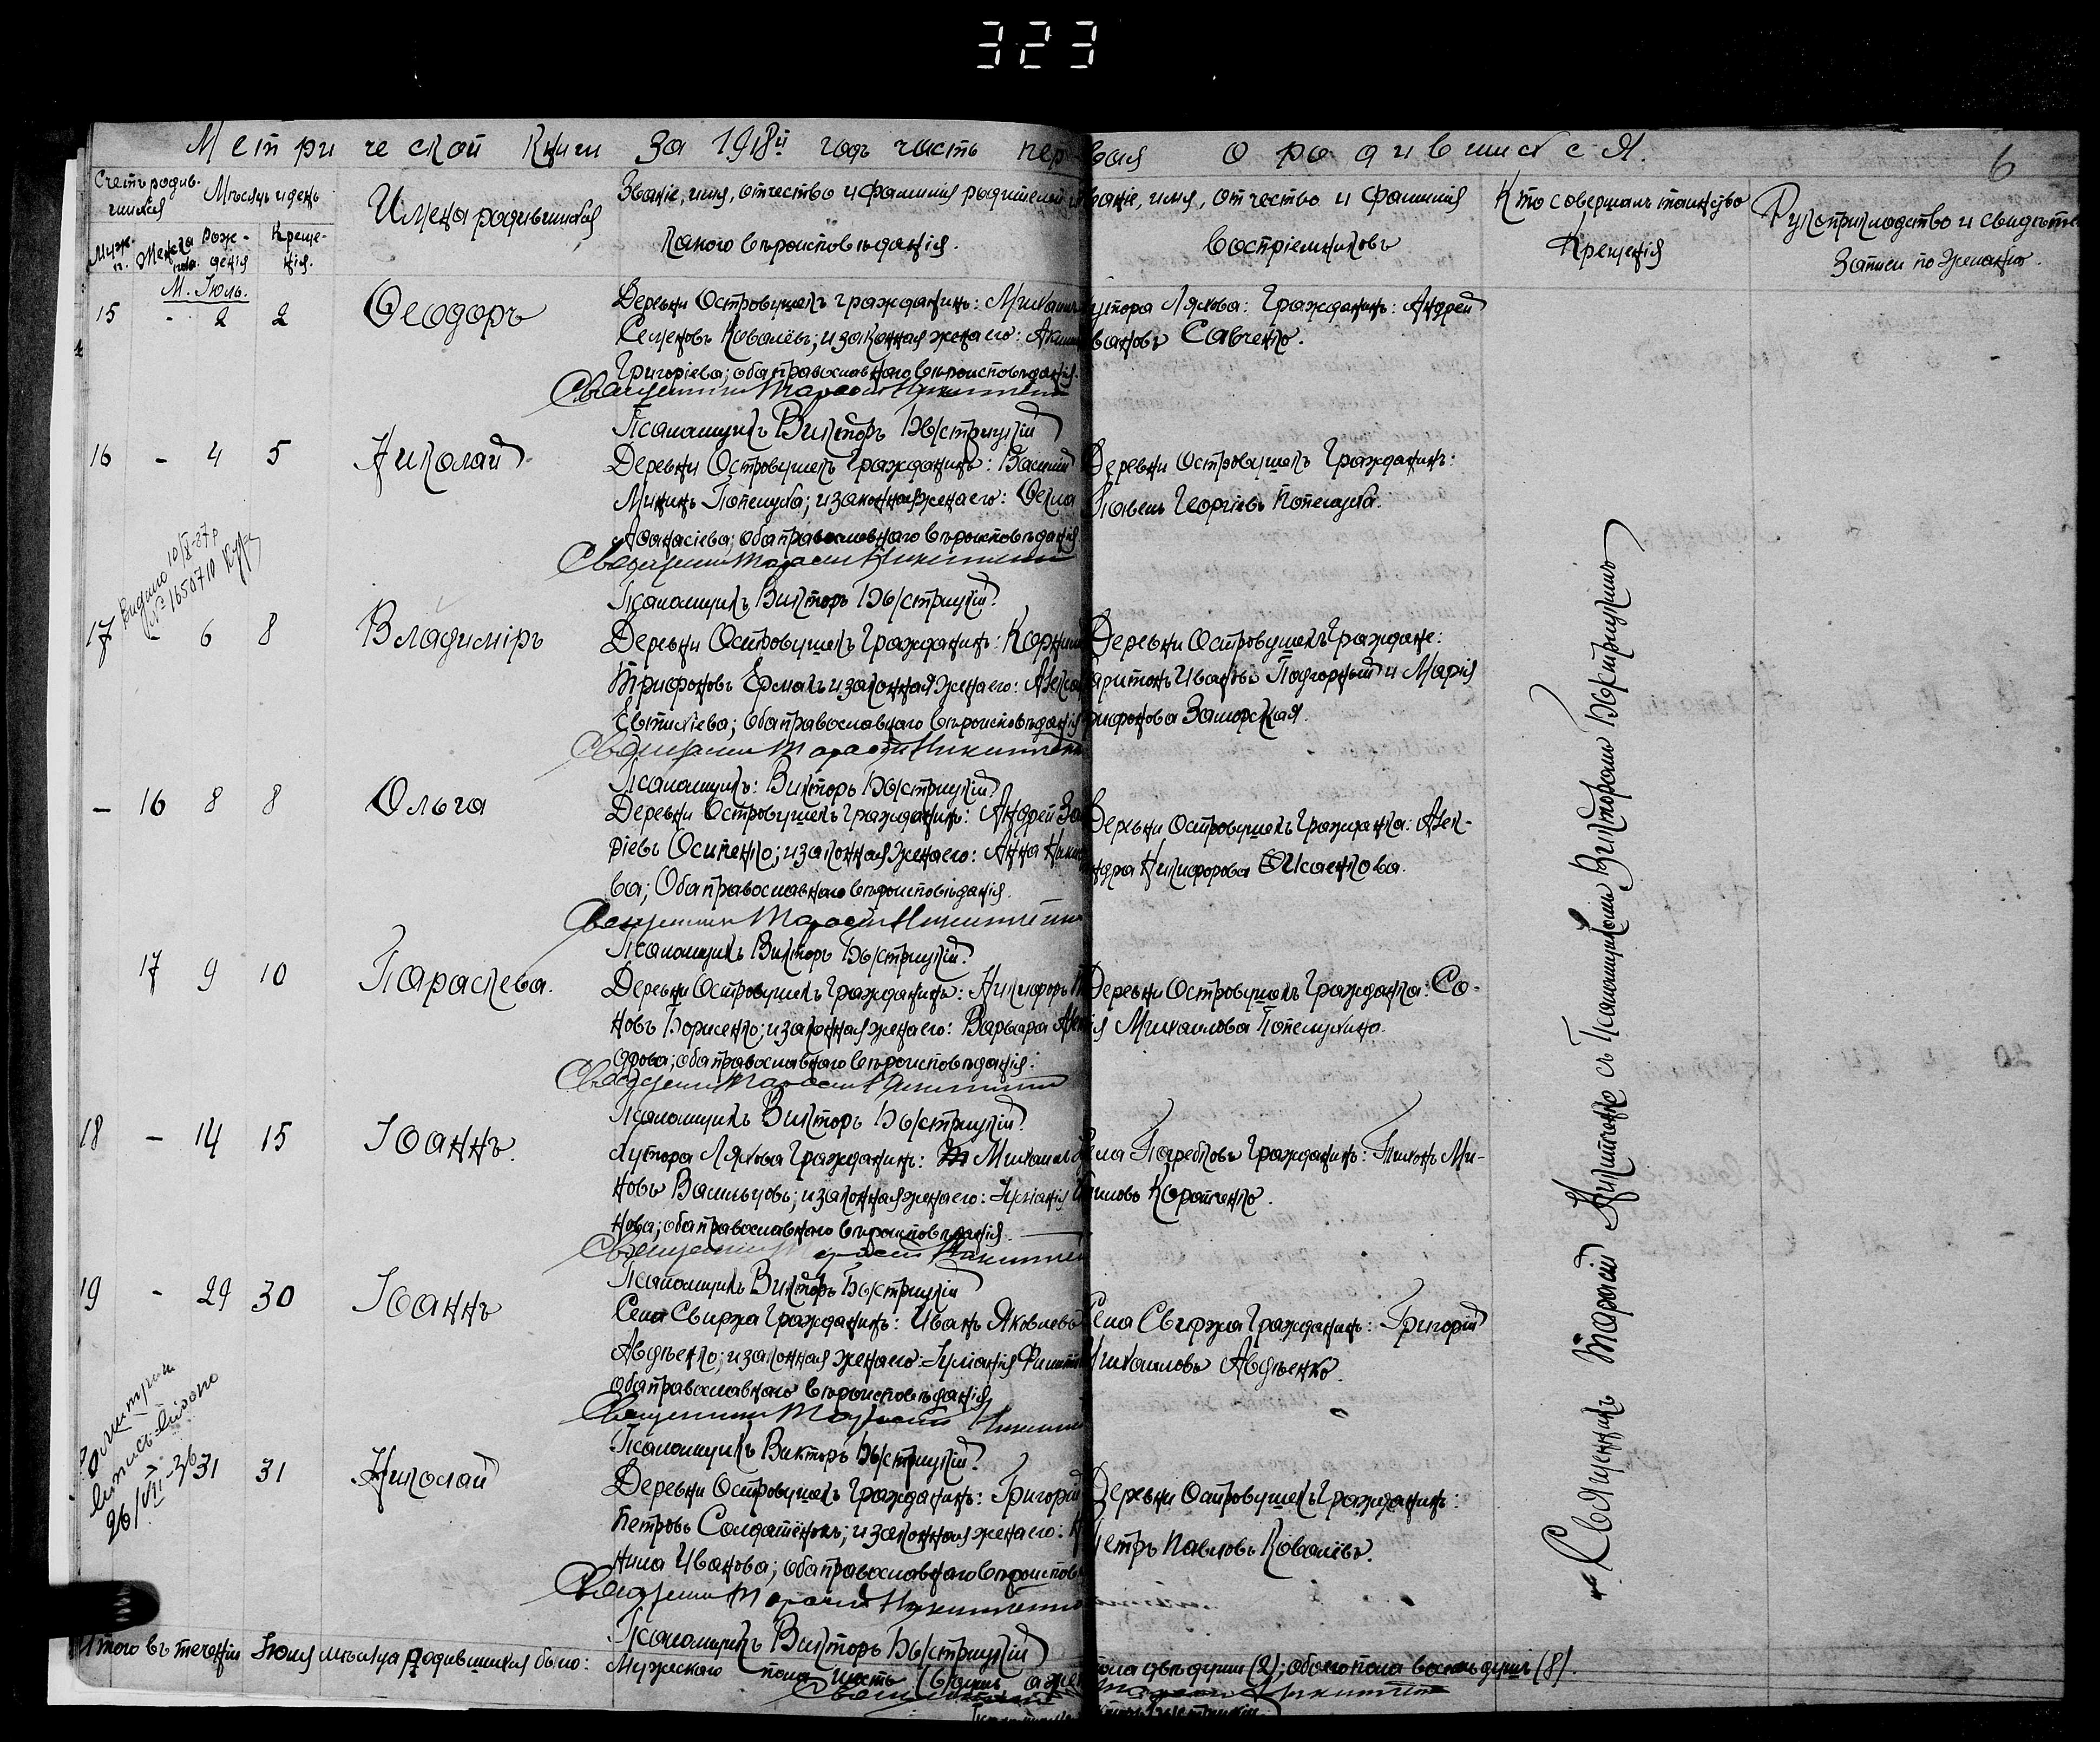 323
Метрической Книги За 1918й годъ часть первая о родившихся.
6
Счетъ родившихся
Мѣсяцъ и день
Имена родившихся
Званіе, имя, отчество и фамилія родителей и
какого вѣроисповѣданія.
Званіе, имя, отчество и фамилія
воспріемниковъ
Кто совершалъ таинство
Крещенія
Рукоприкладство и свидѣте
Записи по желанію.
Муж. п.
Женска пола.
Рожденія
Крещенія.
М. Іюль.
15 - 2 2 Ѳеодоръ
Деревни Островушекъ гражданинъ: Михаилъ
Семеновъ Ковалёвъ; и законная жена его:
Григоріева; оба православнаго вѣроисповѣданія.
Священникъ Тарасій Никитченко
Псаломщикъ Викторъ Быстрицкій
Хутора Ляхова: Гражданинъ: Андрей
Ивановъ Савченко.
16 - 4 5 Николай
Деревни Островушекъ Гражданинъ: Василій
Мининъ Попелуха; и законная жена его: Ѳекла
Аѳанасіева; оба православнаго вѣроисповѣданія
Священникъ Тарасій Никитченко
Псаломщикъ Викторъ Быстрицкій.
Деревни Островушекъ Гражданинъ:
Павелъ Георгіевъ Попелуха.
Видано 10/X-27р
№ 1650710
17 - 6 8 Владиміръ
Деревни Островушекъ Гражданинъ:
Трифоновъ Ермакъ и законная жена его:
Евтихіева; оба православнаго вѣроисповѣданія
Священникъ Тарасій Никитченко
Псаломщикъ: Викторъ Быстрицкій
Деревни Островушекъ Граждане:
Харитонъ Ивановъ Подгорный и Марія
Трифонова Заморская.
- 16 8 8 Ольга
Деревни Островушекъ гражданинъ: Андрей
ріевъ Осипенко; и законная жена его: Анна
ва; Оба православнаго вѣроисповѣданія.
Священникъ Тарасій Никитченко
Псаломщикъ Викторъ Быстрицкій.
Деревни Островушекъ Гражданка: Алек-
сандра Никифорова Исаенкова.
17 9 10 Параскева.
Деревни Островушекъ Гражданинъ: Никифоръ
новъ Борженко; и законная жена его: Варвара
дрова; оба православнаго вѣроисповѣданія.
Священникъ Тарасій Никитченко
Псаломщикъ Викторъ Быстрицкій
Деревни Островушекъ Гражданка: Со-
фія Михаилова Попелухина.
18 - 14 15 Іоаннъ.
Хутора Ляхова Гражданинъ: Михаилъ
новъ Васильцовъ; и законная жена его: Іуліанія
нова; оба православнаго вѣроисповѣданія
Священникъ Тарасій Никитченко
Псаломщикъ Викторъ Быстрицкій
Села Погребковъ Гражданинъ: Тихонъ Ми-
хаиловъ Коротченко.
19 - 29 30 Іоаннъ
Села Свиржа Гражданинъ: Иванъ Яковлевъ
Авдѣенко; и законная жена его: Іуліанія
оба православнаго вѣроисповѣданія
Священникъ Тарасій Никитченко
Псаломщикъ Викторъ Быстрицкій.
Села Свиржа Гражданинъ: Григорій
Михаиловъ Авдѣенко.
26/VII-36
31 31 Николай
Деревни Островушекъ Гражданинъ: Григорій
Петровъ Солдатёнокъ; и законная жена его:
нила Иванова; оба православнаго вѣроисповѣ
Священникъ Тарасій Никитченко
Псаломщикъ Викторъ Быстрицкій
Деревни Островушекъ Гражданинъ:
Петръ Павловъ Ковалёвъ.
Священникъ Тарасій Никитченко съ Псаломщикомъ Викторомъ Быстрицкимъ
Итого въ теченіи Іюля мѣсяца родившихся было: Мужского пола шесть (6) душъ а жен пола двѣ души (2); обоего пола восемь душъ (8).